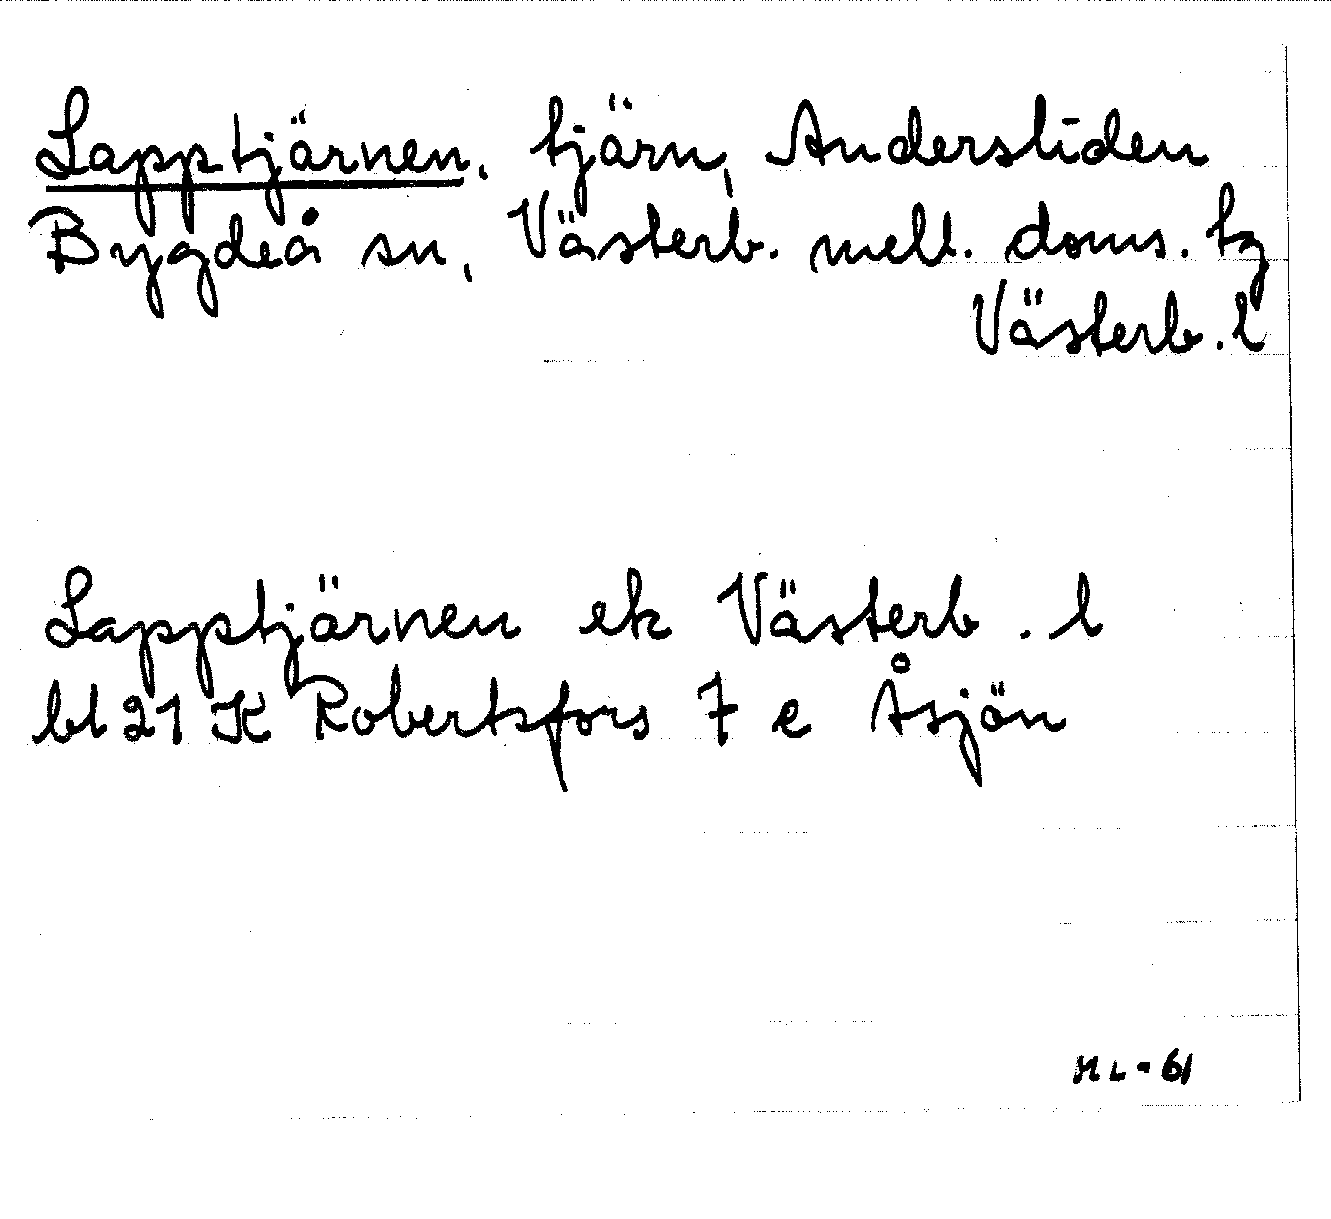 Lapptjärnen, tjärn, Andersliden
Bygdeå sn, Västerb. mell. doms. tg
Västerb. l
Lapptjärnen ek Västerb. l
bl 21 K Robertsfors 7 e Åsjön
HL-61